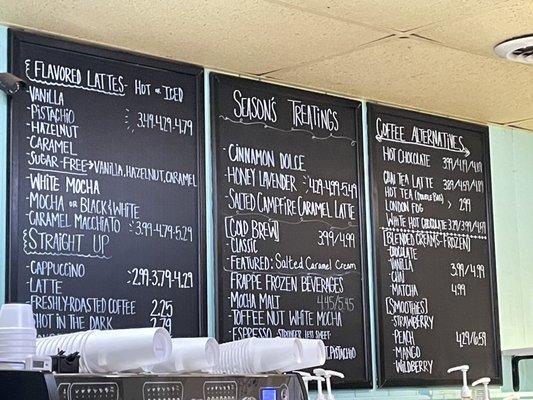 FLAVORED LATTES - HOT OR ICED
-VANILLA
-PISTACHIO 3.49-4.29-4.79
-HAZELNUT
-CARAMEL
-SUGAR-FREE→VANILLA, HAZELNUT, CARAMEL
-WHITE MOCHA
-MOCHA OR BLACK & WHITE
-CARAMEL MACCHIATO 3.99-4.79-5.29
STRAIGHT UP
-CAPPUCCINO
-LATTE 2.99-3.79-4.29
-FRESHLY-ROASTED COFFEE 2.25
-SHOT IN THE DARK
SEASON'S TREATINGS
-CINNAMON DOLCE
-HONEY LAVENDER 4.29-4.99-5.49
-SALTED CAMPFIRE CARAMEL LATTE
[COLD BREW] 3.99/4.99
-CLASSIC
-FEATURED: SALTED CARAMEL CREAM
FRAPPE FROZEN BEVERAGES
-MOCHA MALT 4.45/5.45
-TOFFEE NUT WHITE MOCHA
-ESPRESSO
PISTACHIO
COFFEE ALTERNATIVES
HOT CHOCOLATE
CHAI TEA LATTE
HOT TEA
LONDON FOG > 2.99
WHITE HOT CHOCOLATE
[BLENDED CREAMS-FROZEN]
-CHOCOLATE
-VANILLA 3.99/4.99
-CHAI
-MATCHA 4.99
[SMOOTHIES]
-STRAWBERRY
-PEACH 4.29/6.59
-MANGO
-WILDBERRY